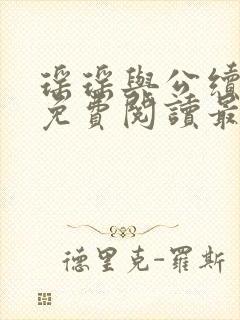 瑶瑶與公續
免費閱讀最
德里克-羅斯